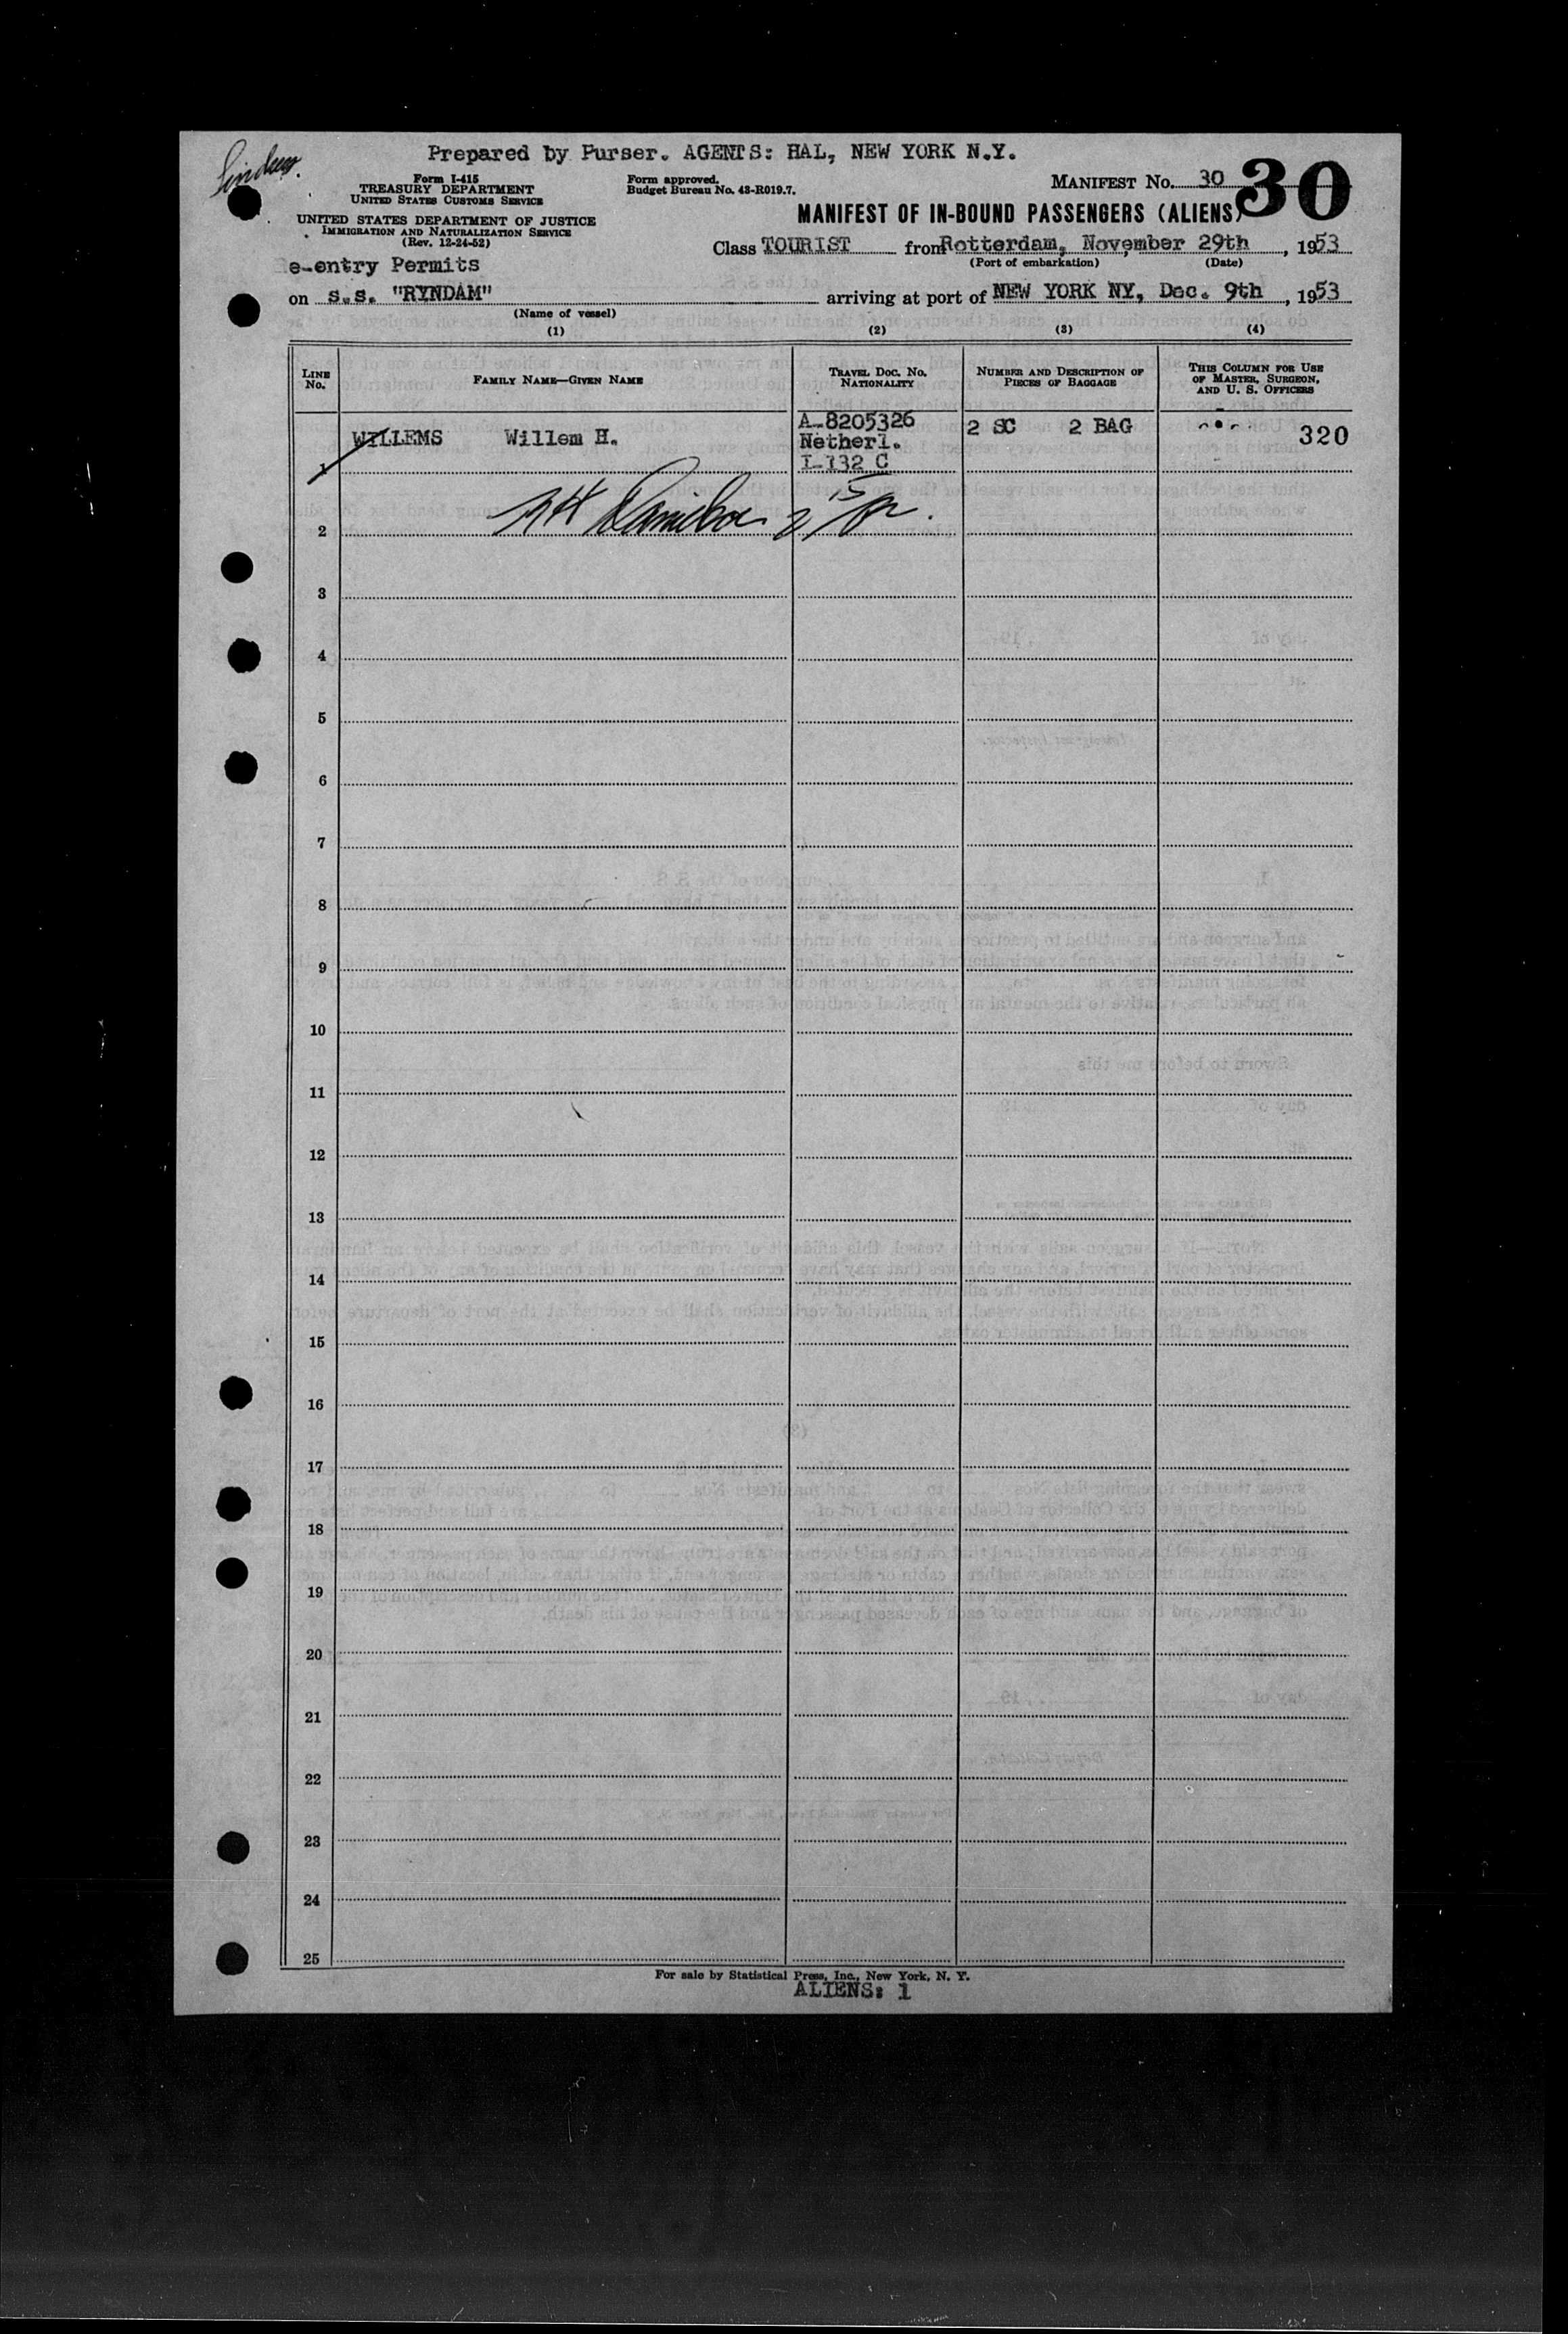 Prepared by Purser. AGENTS: HAL, NEW YORK N.Y.
Form I-415
TREASURY DEPARTMENT
UNITED STATES CUSTOMS SERVICE
UNITED STATES DEPARTMENT OF JUSTICE
IMMIGRATION AND NATURALIZATION SERVICE
(Rev. 12-24-52)
Form approved.
Budget Bureau No. 43-R019.7.
MANIFEST NO. 30
30
MANIFEST OF IN-BOUND PASSENGERS (ALIENS)
Class TOURIST from Rotterdam, November 29th, 1953
(Port of embarkation) (Date)
e-entry Permits
on s.s. "RYNDAM" arriving at port of NEW YORK NY, Dec. 9th, 1953
(Name of vessel)
(1) (2) (3) (4)
LINE NO.
FAMILY NAME—GIVEN NAME
TRAVEL DOC. NO. NATIONALITY
NUMBER AND DESCRIPTION OF PIECES OF BAGGAGE
THIS COLUMN FOR USE OF MASTER, SURGEON, AND U. S. OFFICERS
1 WILLEMS Willem H. A-8205326 2 SC 2 BAG 320
Netherl.
I-132 C
2
3
4
5
6
7
8
9
10
11
12
13
14
15
16
17
18
19
20
21
22
23
24
25
For sale by Statistical Press, Inc., New York, N. Y.
ALIENS: 1